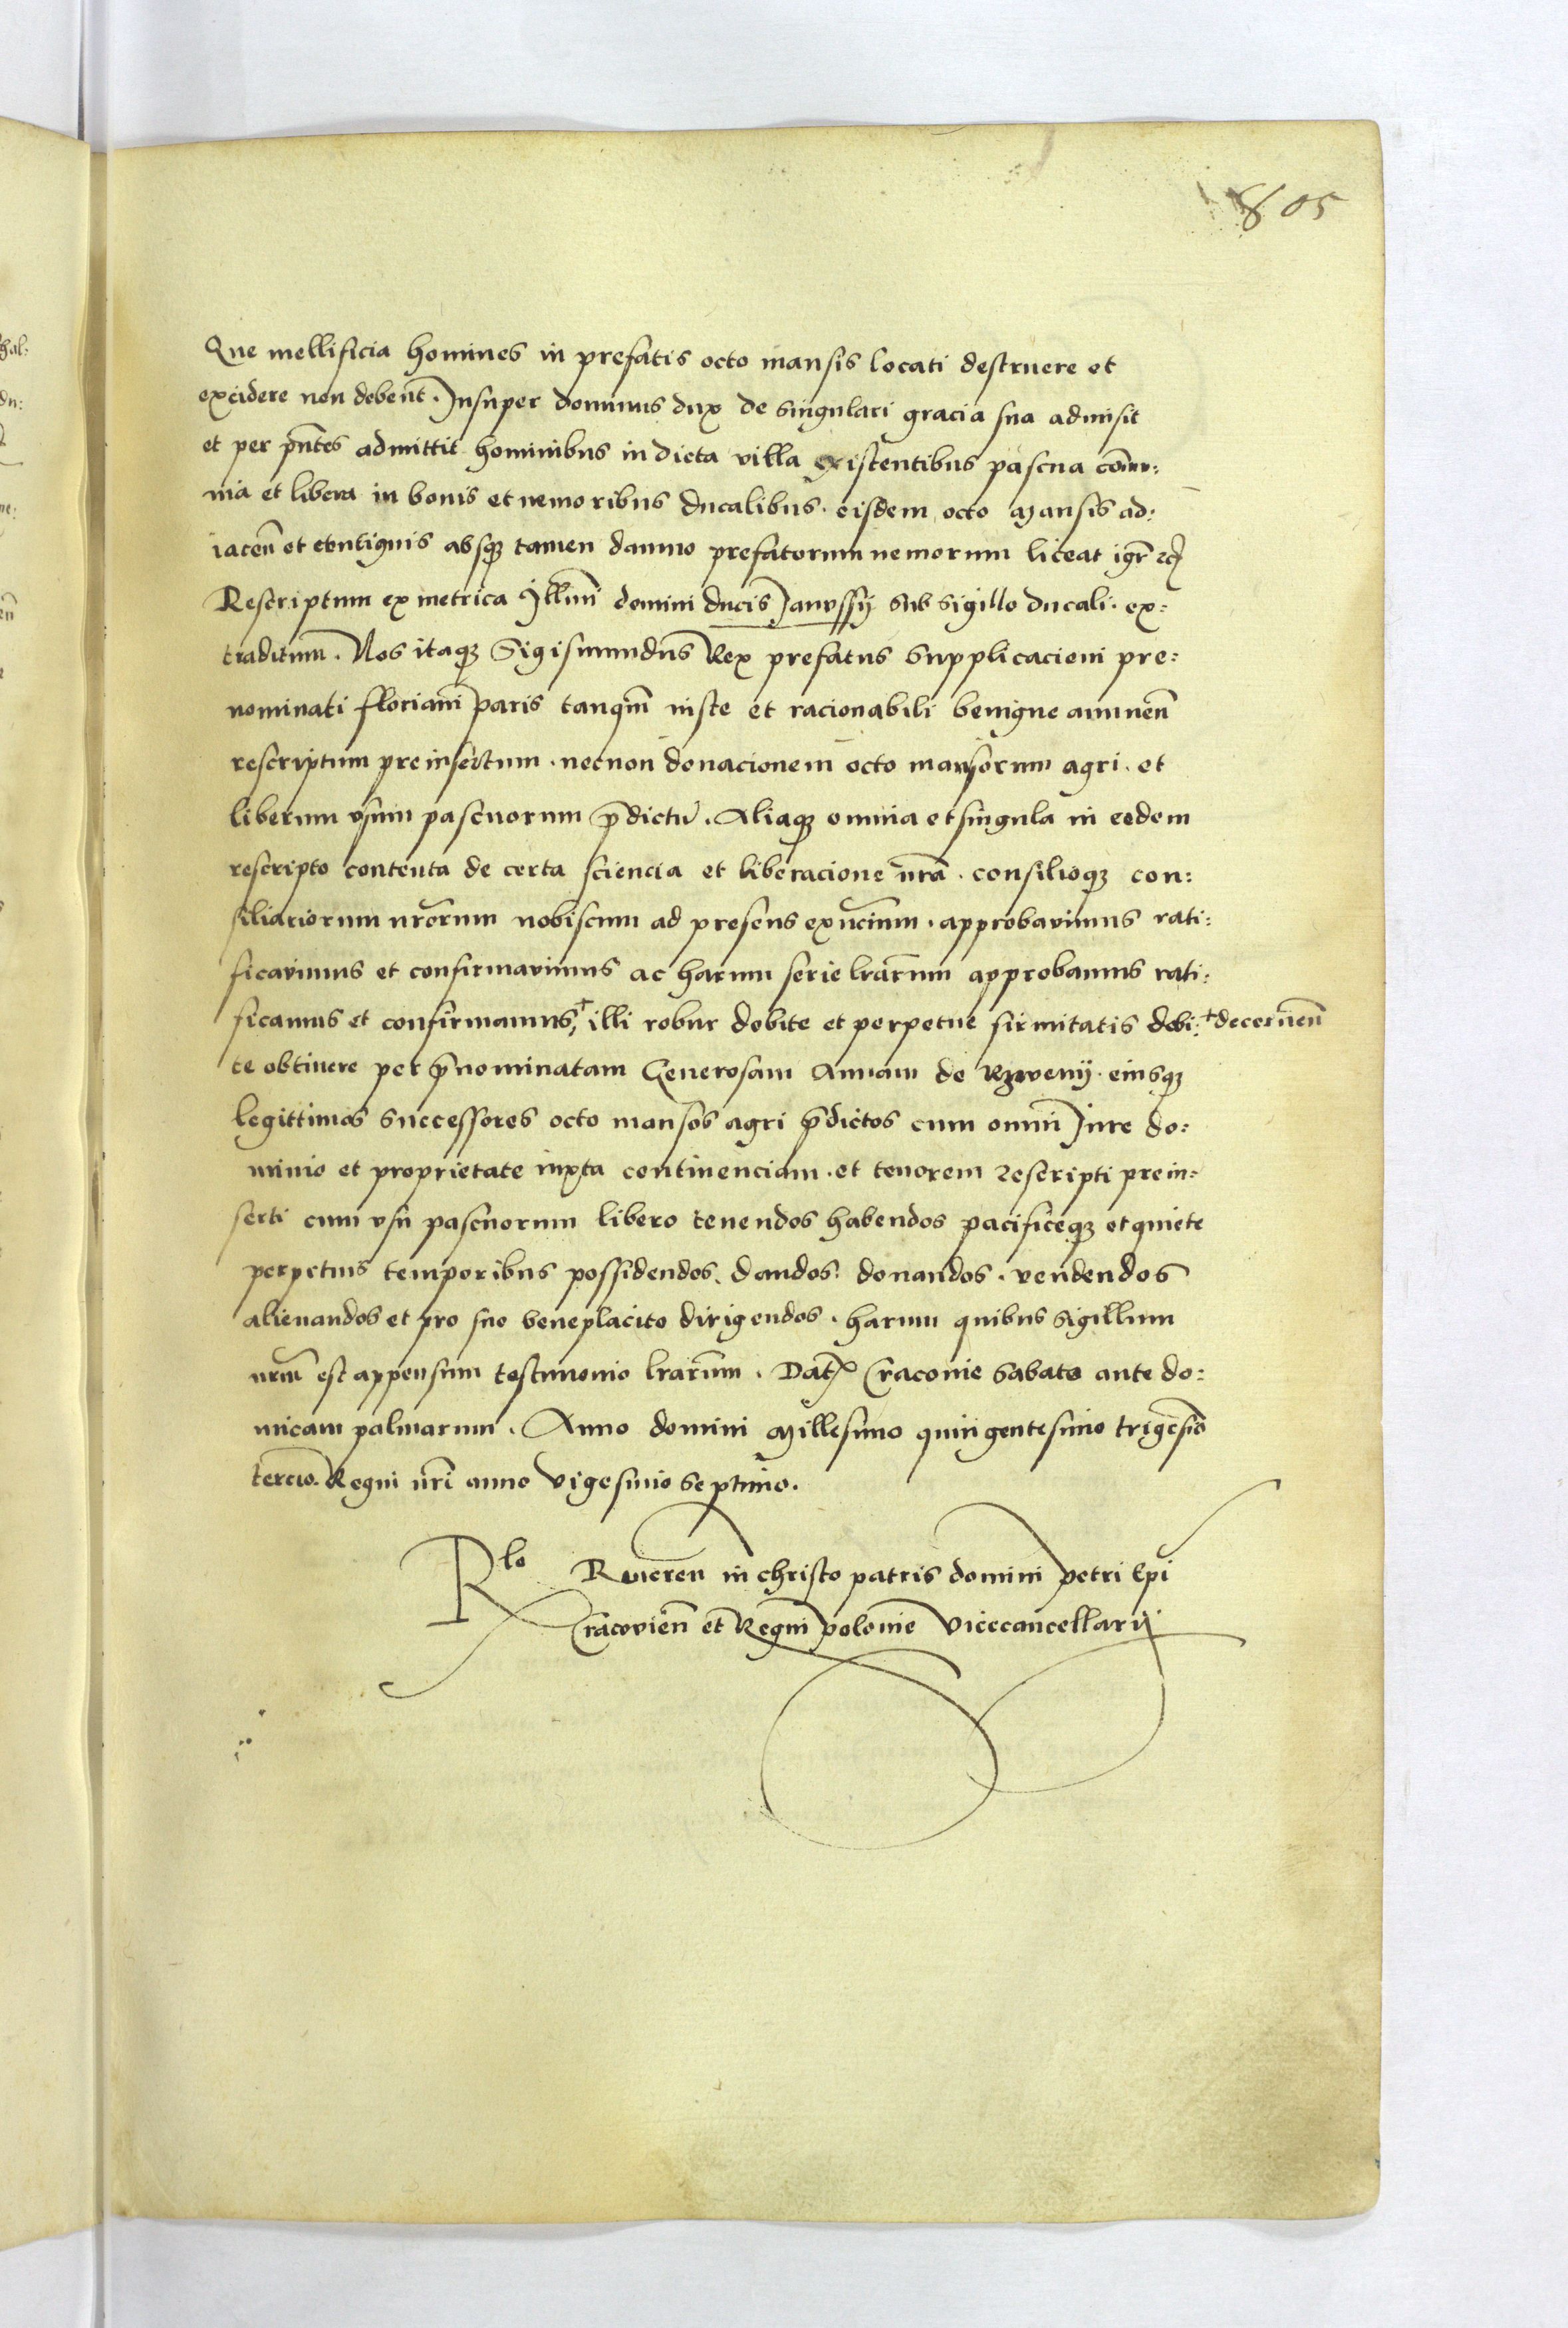 805
Que mellificia homines in prefatis octo mansis locati destruere et
excidere non debent̄. Insuper dominus dux de singulari gracia sua admisit
et per pn̄tes admittit hominibus in dicta villa existentibus pascua com̄u:
nia et libera in bonis et nemoribus ducalibus. eisdem octo mansis ad:
iacen̄ et contiguis absqꝫ tamen damno prefatorum nemorum liceat igr̄
Rescriptum ex metrica Illmi domini ducis Janussij sub sigillo ducali. ex:
traditum. Nos itaqꝫ Sigismundus Rex prefatus supplicacioni pre:
nominati floriani paris tanqm̄ iuste et racionabili benigne annuen̄
rescriptum preinsertum. necnon donacionem octo mansorum agri. et
liberum vsum pascuorum p̄dictū. Aliaqꝫ omnia et singula in eodem
rescripto contenta de certa sciencia et liberacione nr̄a. consilioqꝫ con:
siliariorum nr̄orum nobiscum ad presens exn̄cium. approbavimus rati:
ficavimus et confirmavimus ac harum serie lr̄arum approbamus rati:
ficamus et confirmamus, ⁺ illi robur debite et perpetue firmitatis debi: ⁺ decernen̄
te obtinere per p̄nominatam Generosam Annam de Rzwenij. eiusqꝫ
legittimos successores octo mansos agri p̄dictos cum omni Jure do:
minio et proprietate iuxta continenciam. et tenorem rescripti prein:
serti cum vsu pascuorum libero tenendos habendos pacificeqꝫ et quiete
perpetuis temporibus possidendos. dandos. donandos. vendendos
alienandos et pro suo beneplacito dirigendos. harum quibus sigillum
nrm̄ est appensum testimonio lrarum̄. Dat̄ Cracovie Sabato ante do:
nicam palmarum. Anno domini Millesimo quingentesimo trigesio
tercio. Regni nr̄i anno vigesimo septimo.
Rlo Reveren̄ in christo patris domini petri Epi
Cracovien̄ et Regni polonie vicecancellarij